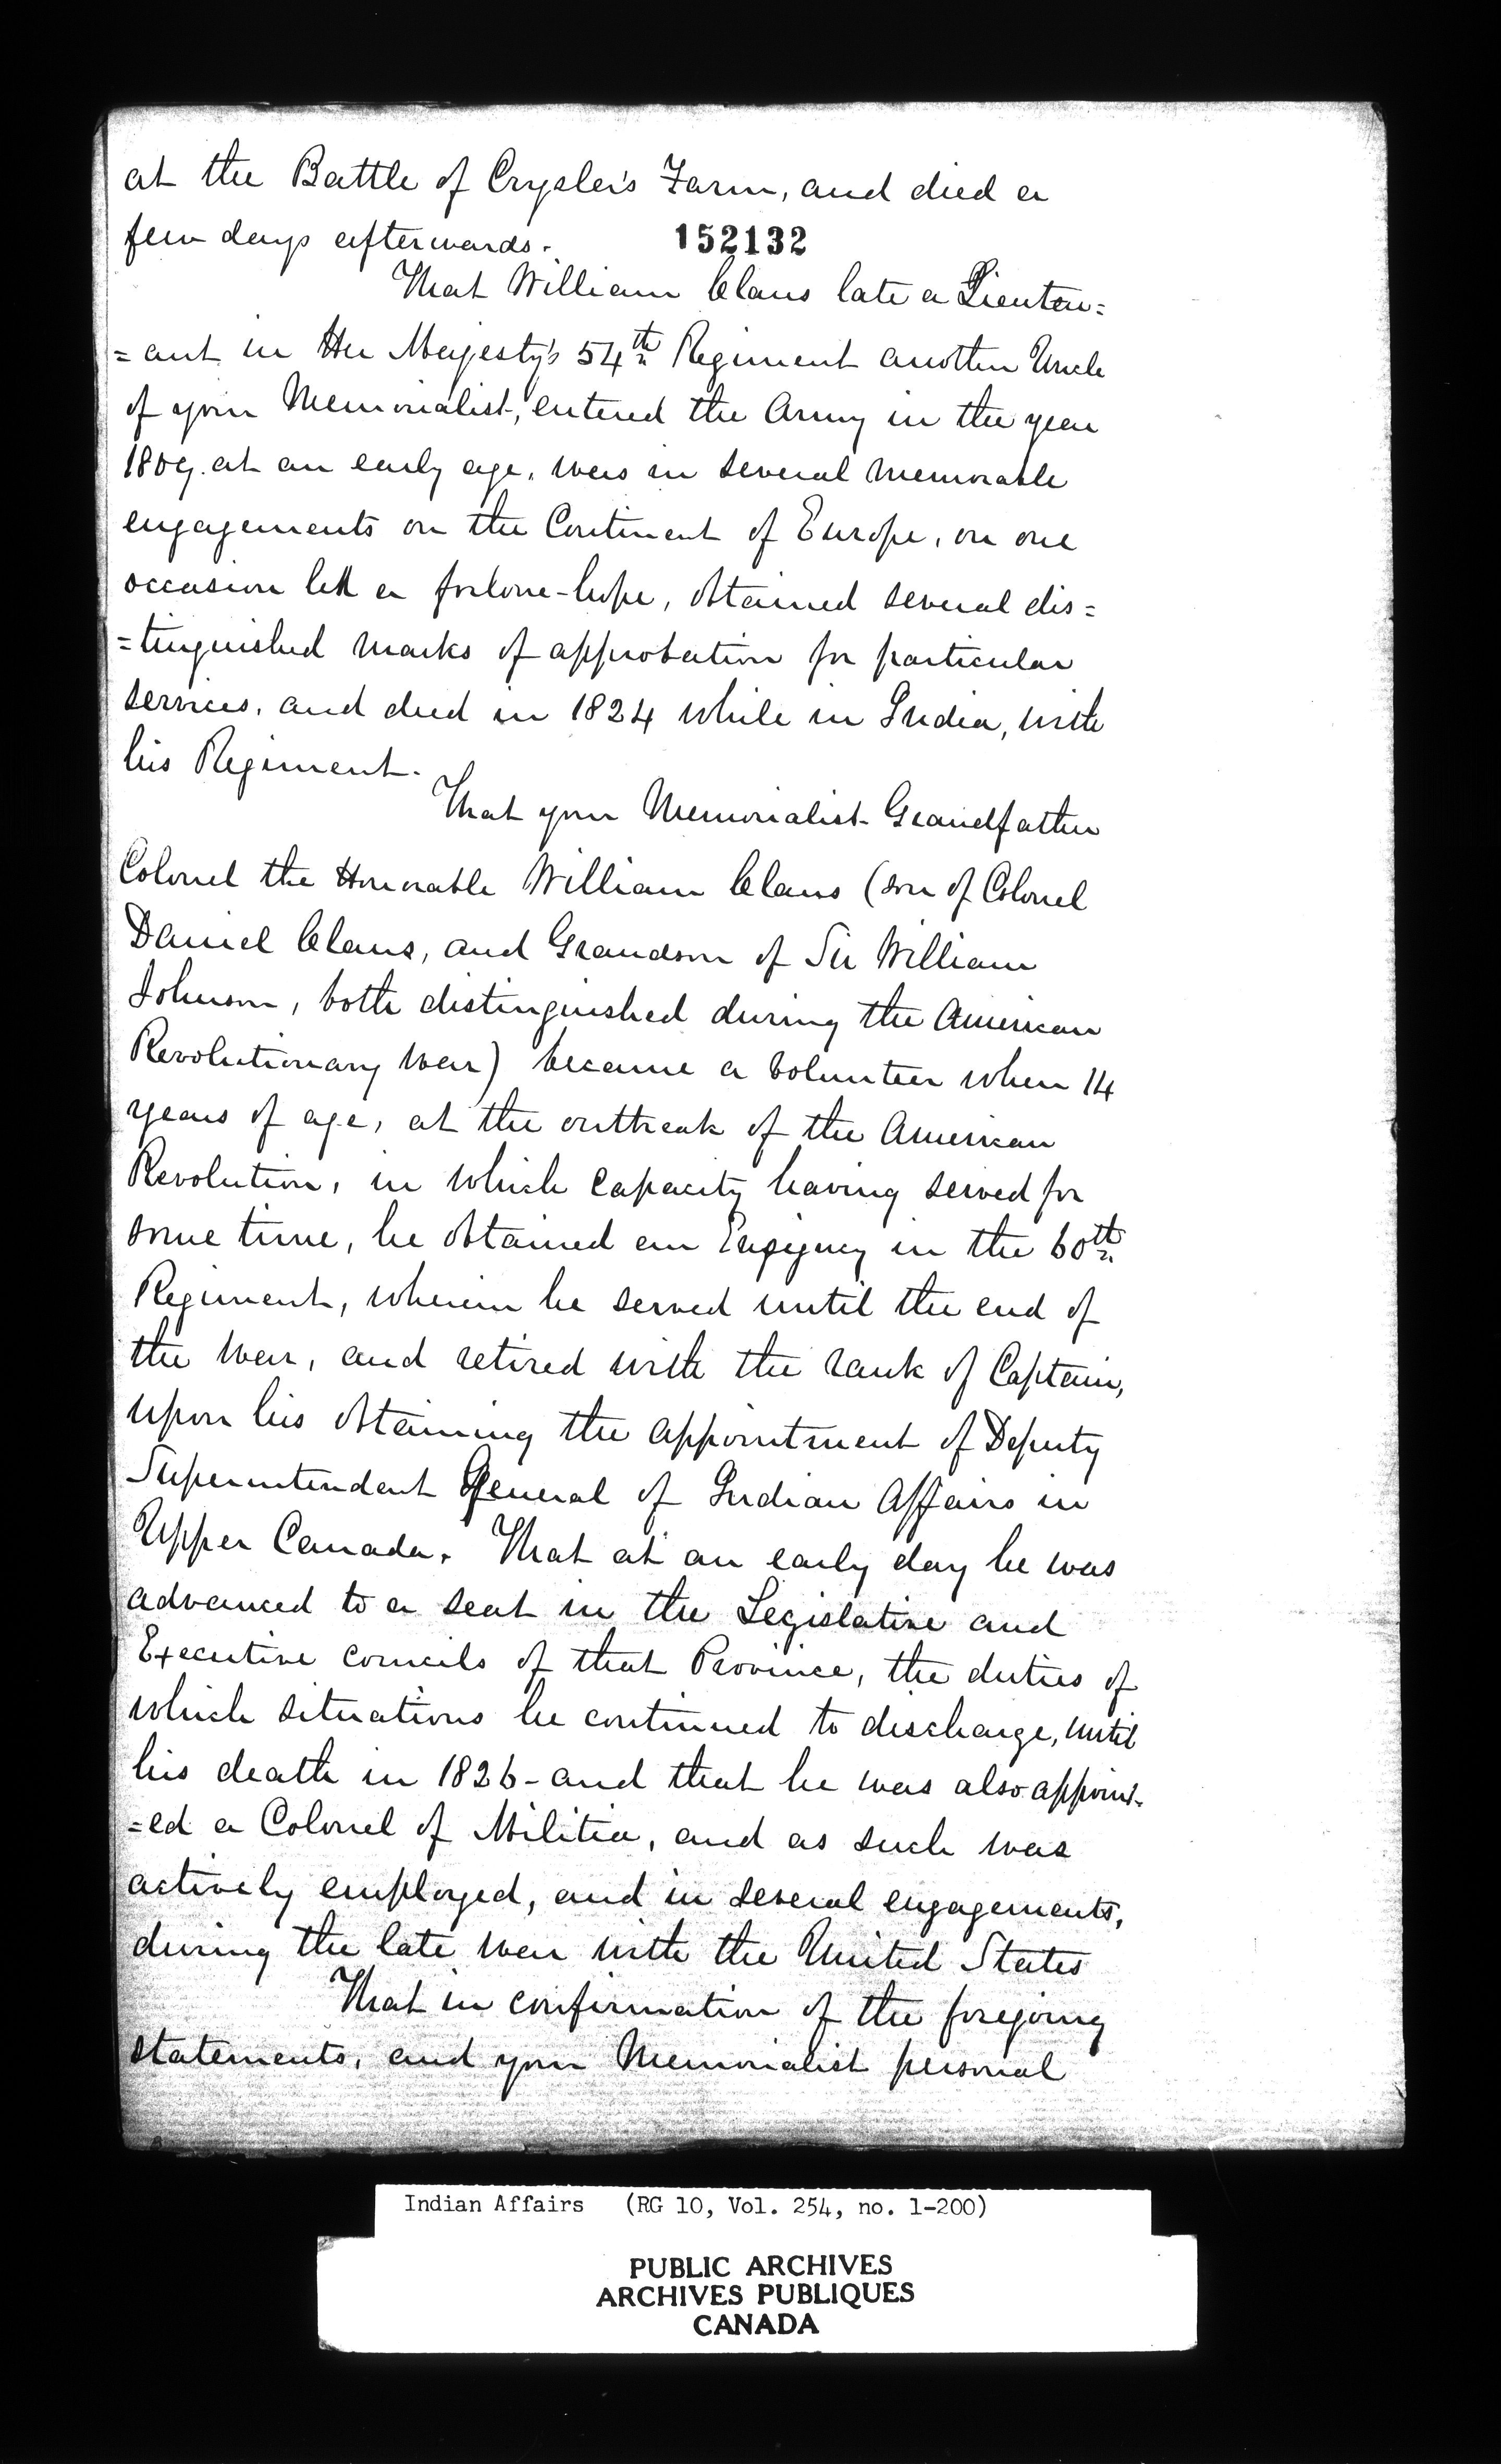 at the Battle of Crysler's Farm, and died a
few days afterwards. 152132
That William Claus late a Lieuten=
=ant in Her Majesty's 54th Regiment another Uncle
of your Memorialist, entered the Army in the year
1809. at an early age, was in several memorable
engagements on the Continent of Europe, on one
occasion led a forlorn-hope, obtained several dis=
=tinguished marks of approbation for particular
services, and died in 1824 while in India, with
his Regiment.
That your Memorialist Grandfather
Colonel the Honorable William Claus (son of Colonel
Daniel Claus, and Grandson of Sir William
Johnson, both distinguished during the American
Revolutionary War) became a volunteer when 14
years of age, at the outbreak of the American
Revolution, in which capacity having served for
some time, he obtained an in the 60th
Regiment, wherein he served until the end of
the War, and retired with the rank of Captain,
upon his obtaining the appointment of Deputy
Superintendent General of Indian Affairs in
Upper Canada. That at an early day he was
advanced to a seat in the Legislative and
Executive councils of that Province, the duties of
which situations he continued to discharge, until
his death in 1826 - and that he was also appoint-
=ed a Colonel of Militia, and as such was
actively employed, and in several engagements,
during the late War with the United States
That in confirmation of the foregoing
statements, and your Memorialist personal
Indian Affairs (RG 10, Vol. 254, no. 1-200)
PUBLIC ARCHIVES
ARCHIVES PUBLIQUES
CANADA